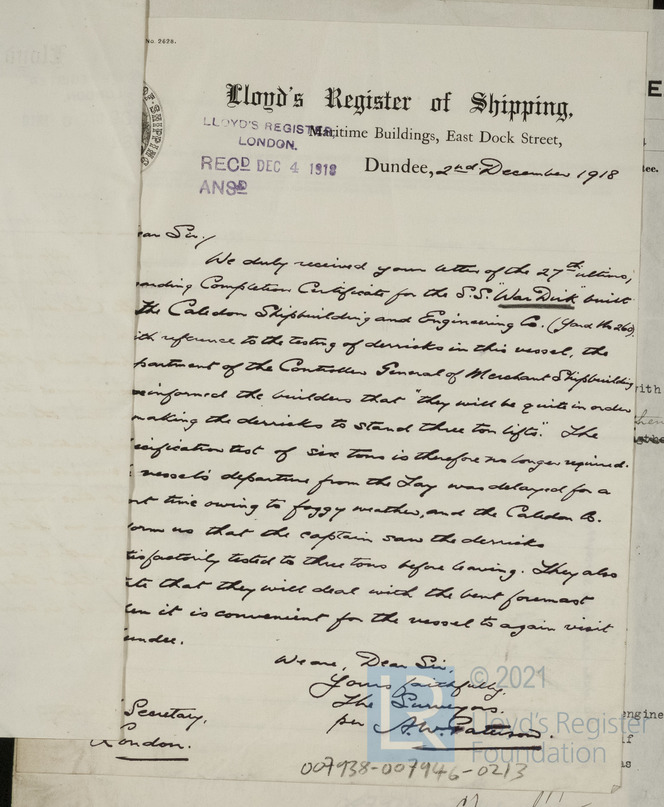 No. 2628.
Lloyd's Register of Shipping,
Maritime Buildings, East Dock Street,
LLOYD'S REGISTER
LONDON.
RECD DEC 4 1918
ANSD
Dundee, 2nd December 1918
ear Sir,
We duly received your letter of the 27th ultimo,
arding Completion Certificate for the S.S. "War Dirk" built
the Caledon Shipbuilding and Engineering Co. (Yard No 260).
ith reference to the testing of derricks in this vessel, the
partment of the Controller General of Merchant Shipbuilding
informed the builders that "they will be quite in order
making the derricks to stand three ton lifts". The
ecification test of six tons is therefore no longer required.
vessel's departure from the Tay was delayed for a
rt time owing to foggy weather, and the Caledon Co.
orm us that the captain saw the derricks
tisfactorily tested to three tons before leaving. They also
ate that they will deal with the bent foremast
hen it is convenient for the vessel to again visit
undee.
We are, Dear Sir,
Yours faithfully,
The Surveyors.
per A.W. Paterson.
Secretary,
London.
007938-007946-0213
© 2021
LR
Lloyd's Register
Foundation
E
tee.
ith
engine
if
as